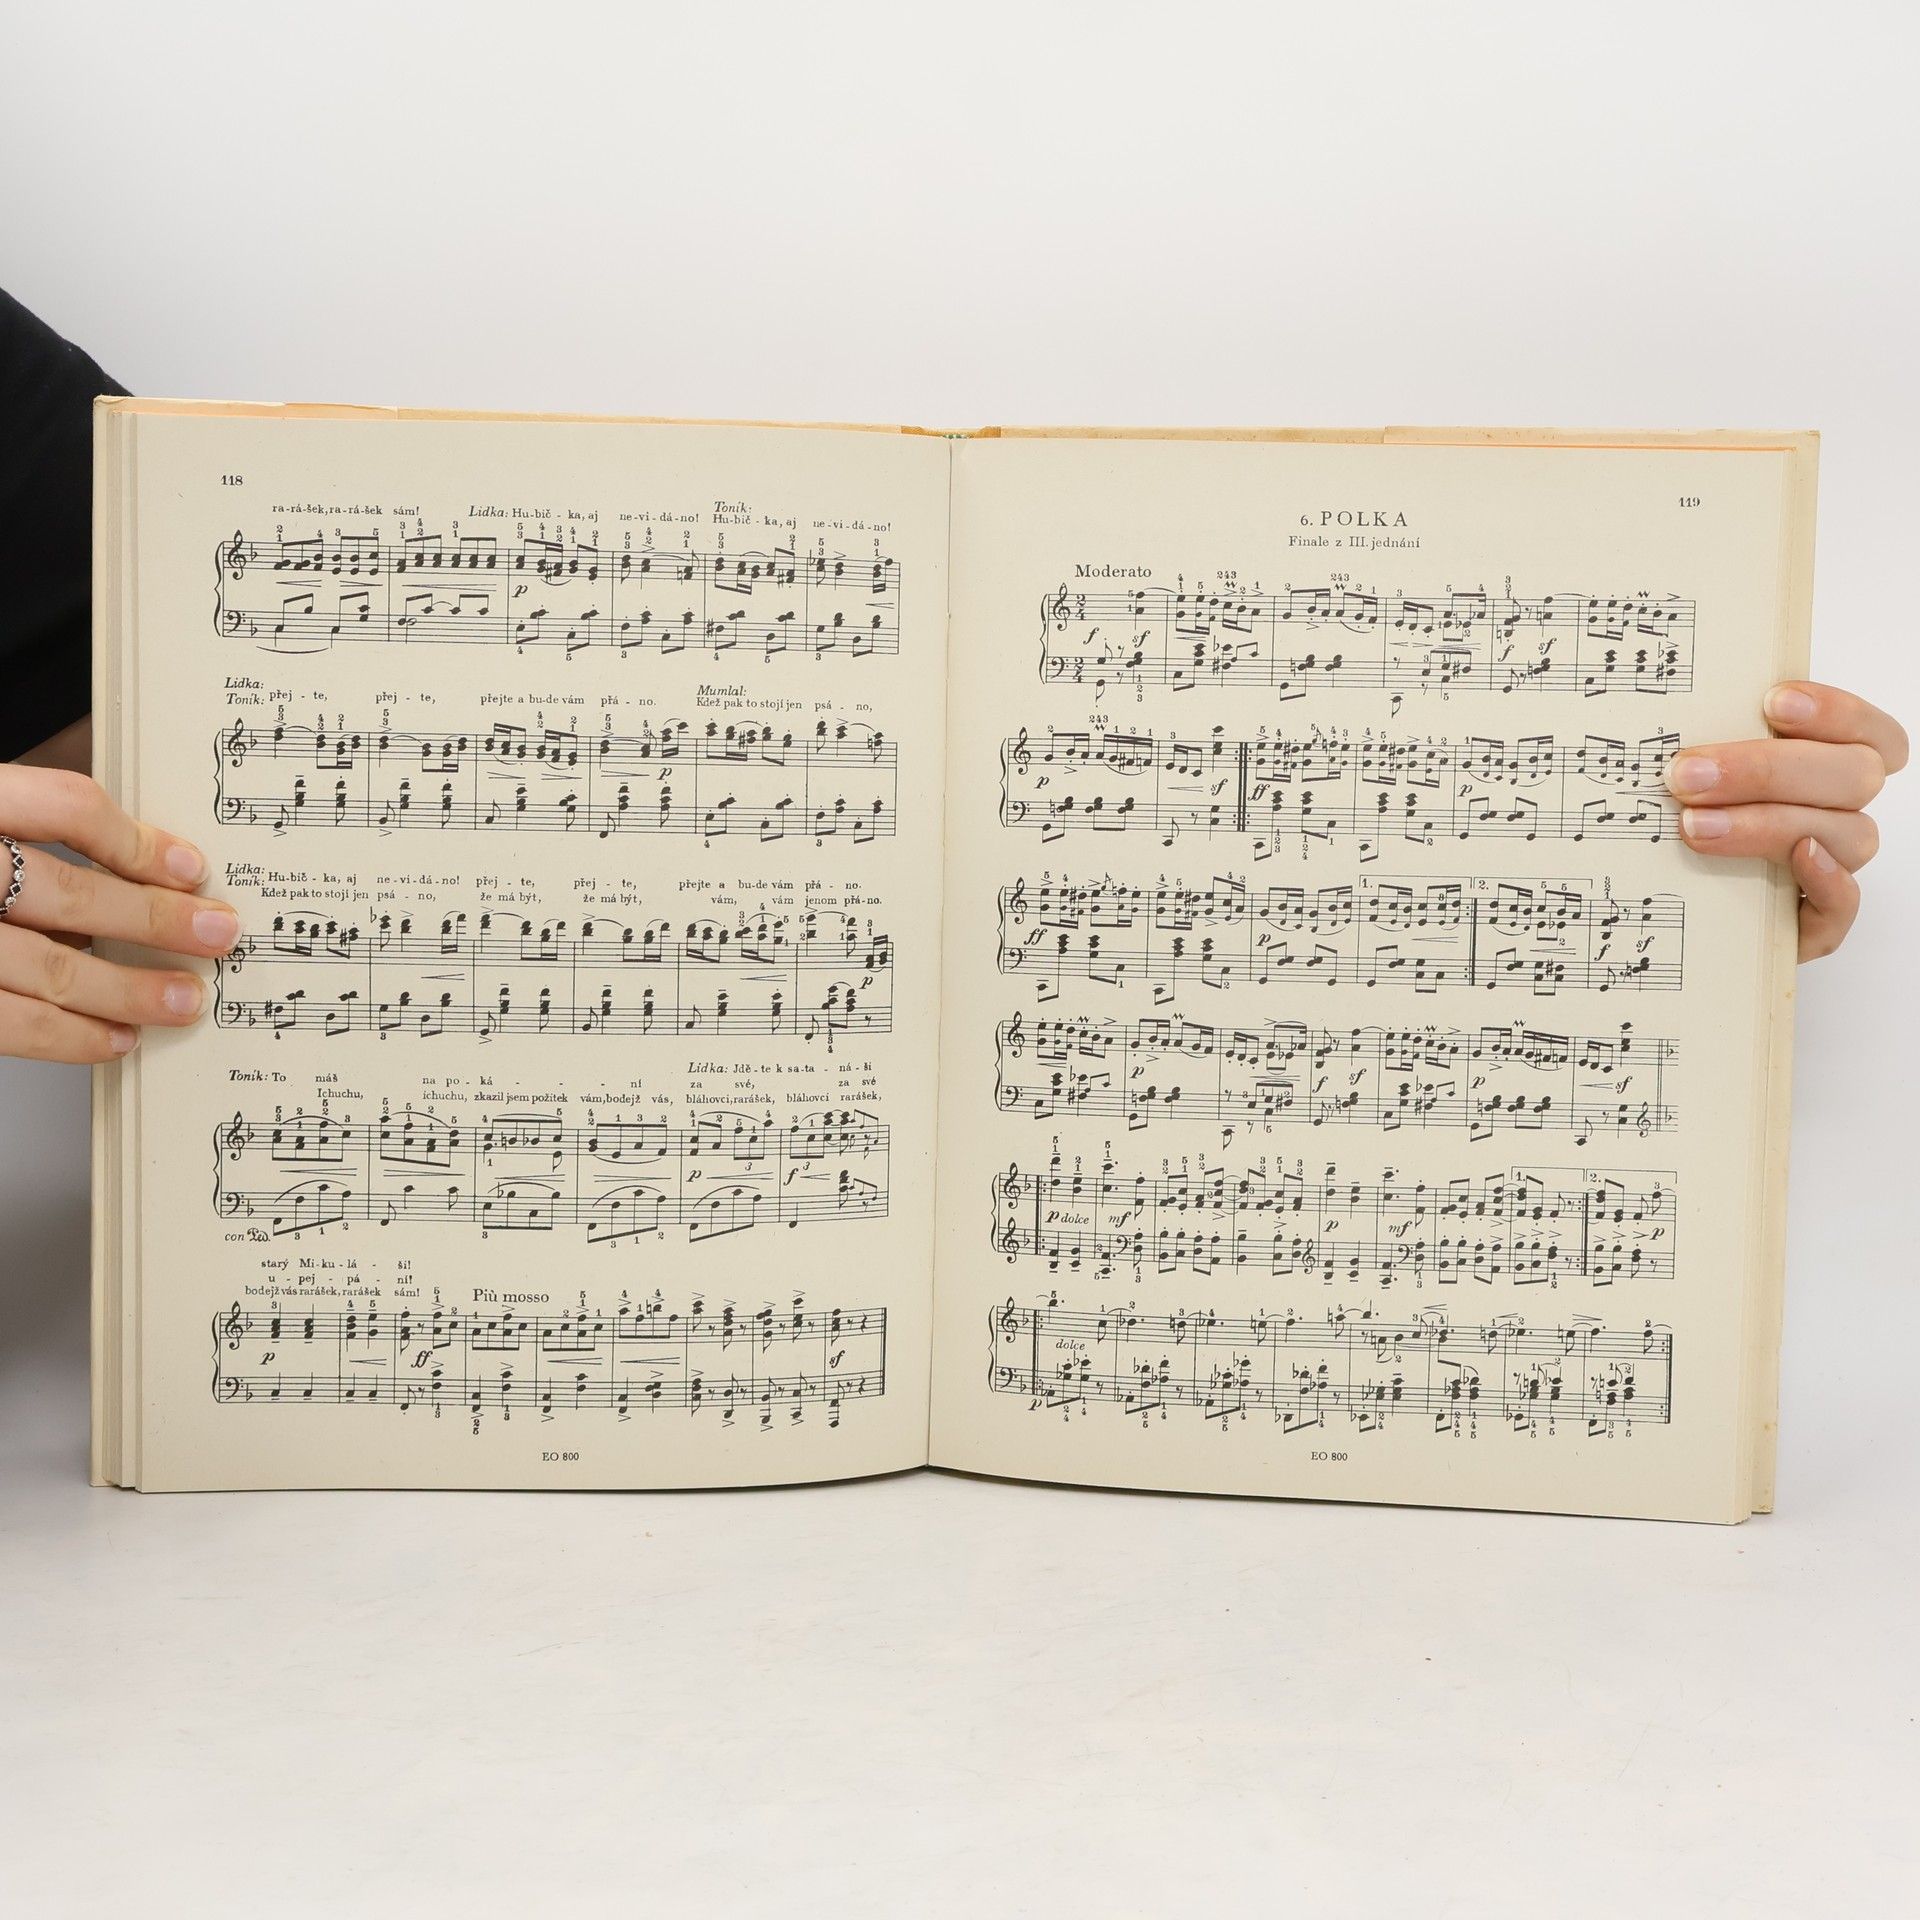 118
ra-rá-šek, ra-rá-šek sám! Lidka: Hu-bič - ka, aj ne-vi-dá-no! Toník: Hu-bič - ka, aj ne-vi-dá-no!
p
Lidka:
Toník: přej - te, přej - te, přejte a bu-de vám přá - no. Mumlal: Kdež pak to stojí jen psá - no,
p
Lidka:
Toník: Hu-bič - ka, aj ne-vi-dá-no! přej - te, přej - te, přejte a bu-de vám přá - no.
Kdež pak to stojí jen psá - no, že má být, že má být, vám, vám jenom přá-no.
p
Lidka: Jdě-te k sa-ta - ná-ši
Toník: To máš na po - ká - - - ní za své, za své
Ichuchu, ichuchu, zkazil jsem požitek vám, bodejž vás, bláhovci, rarášek, bláhovci rarášek,
p f
con Ped.
starý Mi-ku-lá - ši!
u - pej - pá - ní!
bodejž vás rarášek, rarášek sám! Più mosso
p ff sf
EO 800
119
6. POLKA
Finale z III. jednání
Moderato
f sf f sf
p sf ff p
1. 2.
ff p f sf
p f sf p sf
1. 2.
p dolce mf p mf p
dolce
p
EO 800